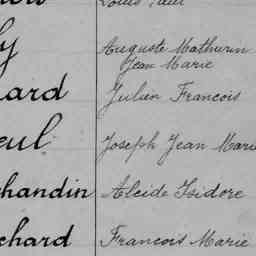 Louis
y Auguste Mathurin
Jean Marie
ard Julien Francois
eul Joseph Jean Marie
handin Alcide Isidore
chard Francois Marie